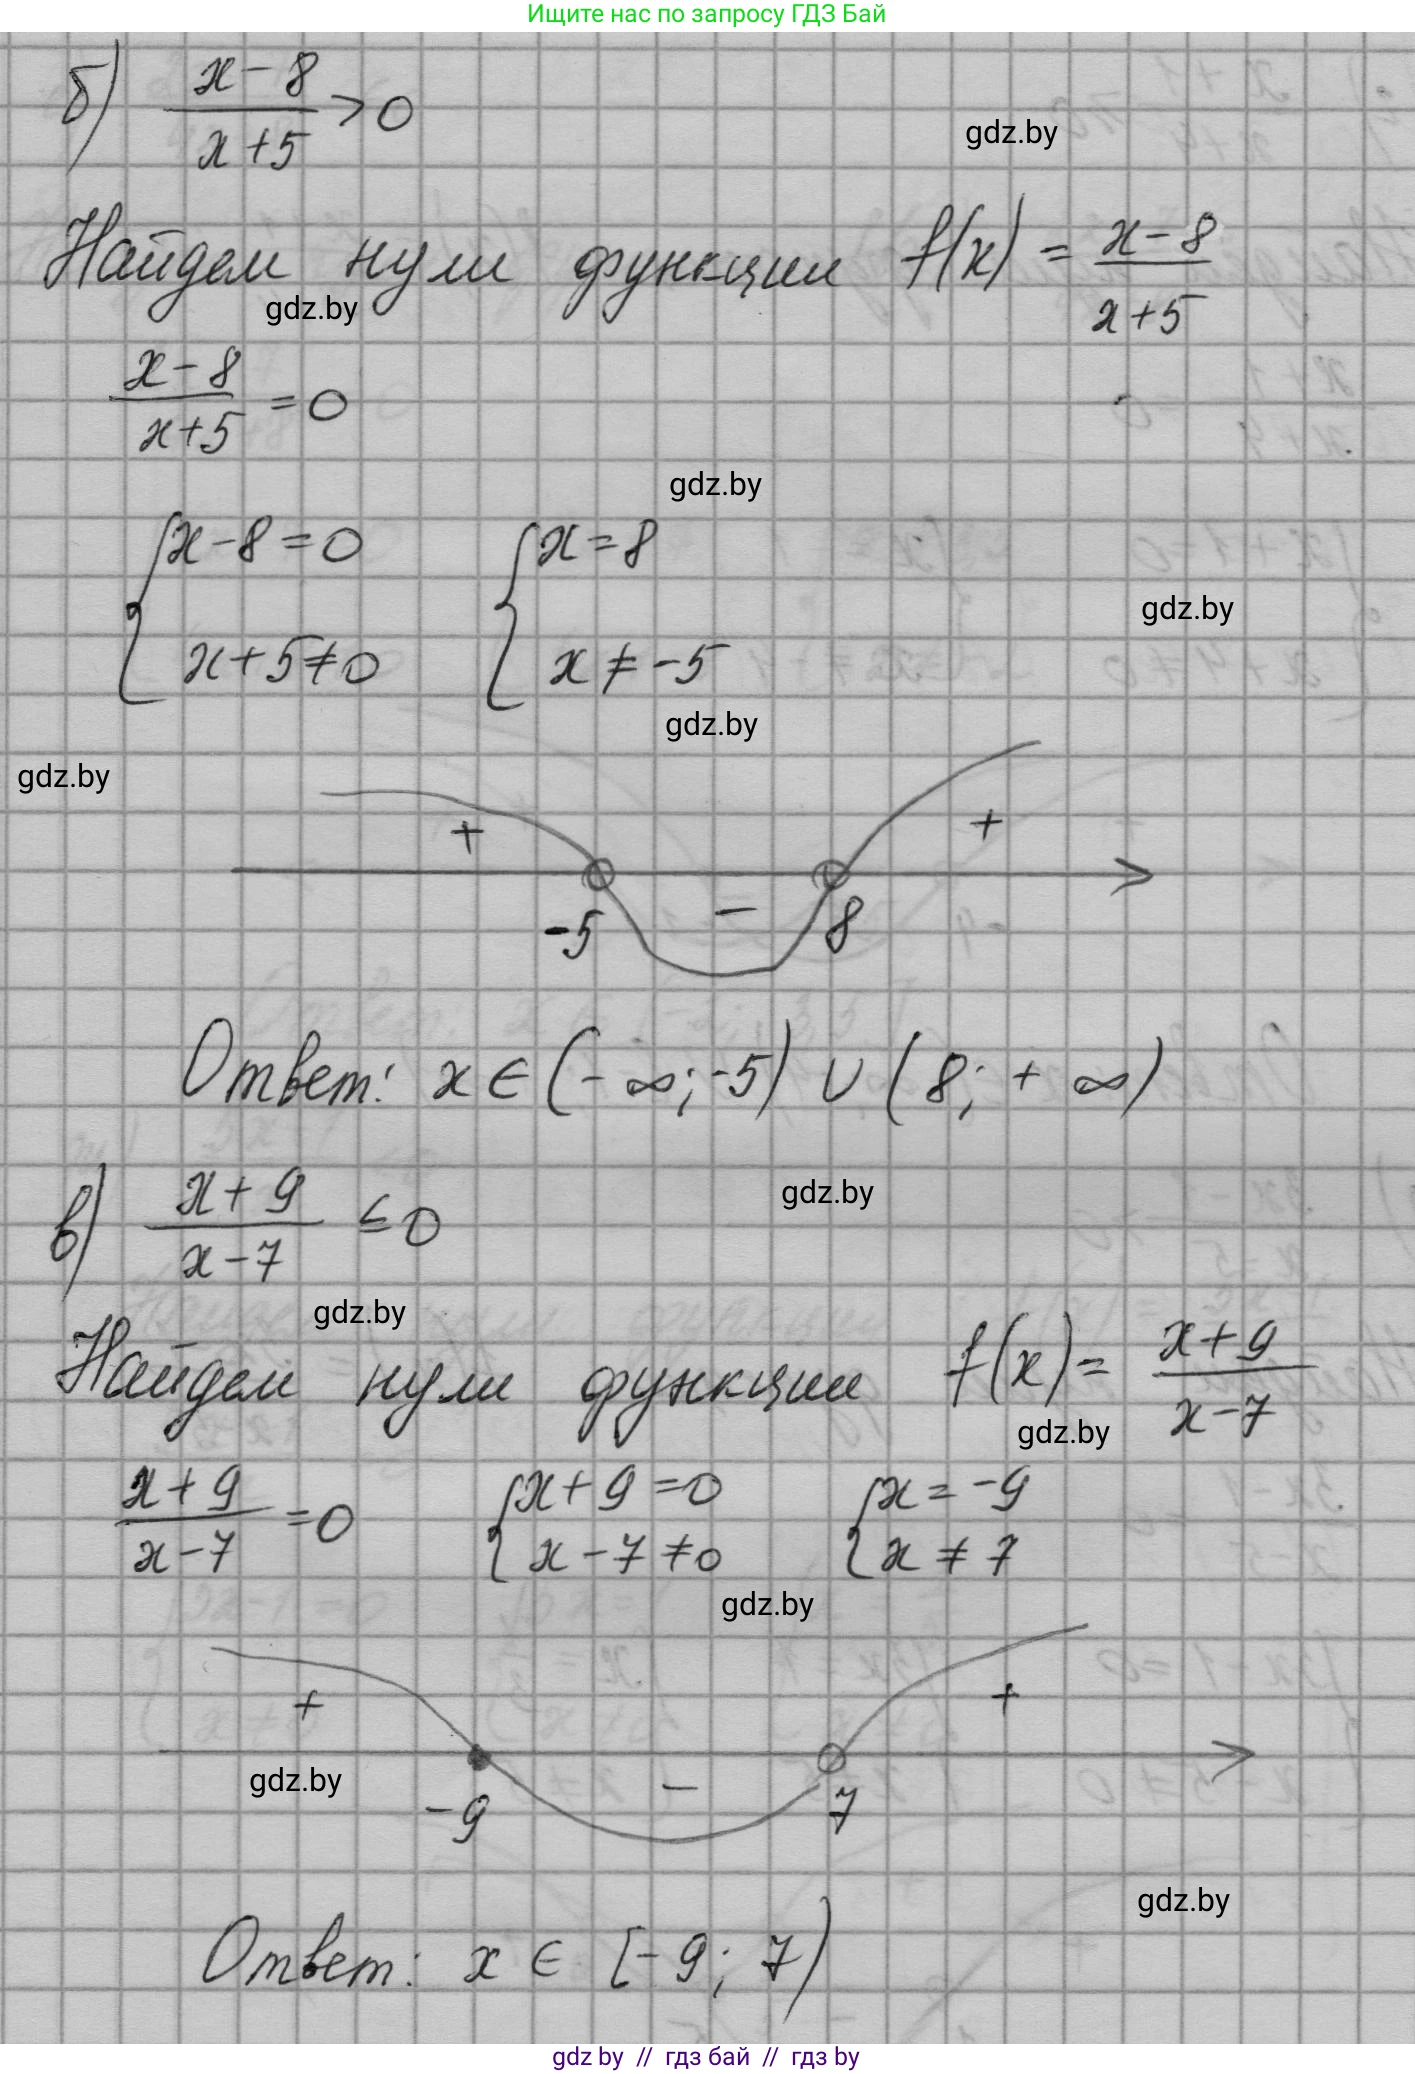 Ищите нас по запросу ГДЗ Бай
б) (x-8)/(x+5) > 0
gdz.by
Найдем нули функции f(x) = (x-8)/(x+5)
gdz.by
(x-8)/(x+5) = 0
gdz.by
{x-8=0 {x=8
gdz.by
x+5≠0 x≠-5
gdz.by
gdz.by
+ +
-5 - 8
Ответ: x∈(-∞;-5) ∪ (8;+∞)
gdz.by
в) (x+9)/(x-7) ≤ 0
gdz.by
Найдем нули функции f(x) = (x+9)/(x-7)
gdz.by
(x+9)/(x-7) = 0 {x+9=0 {x=-9
x-7≠0 x≠7
gdz.by
+ +
gdz.by
-9 - 7
gdz.by
Ответ: x∈[-9;7)
gdz by // гдз бай // гдз by